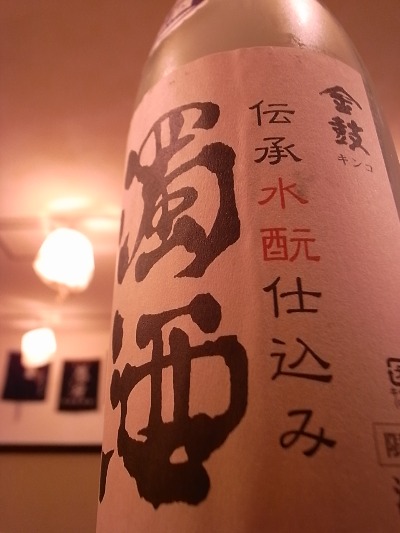 金鼓
キンコ
伝承水酛仕込み
濁酒